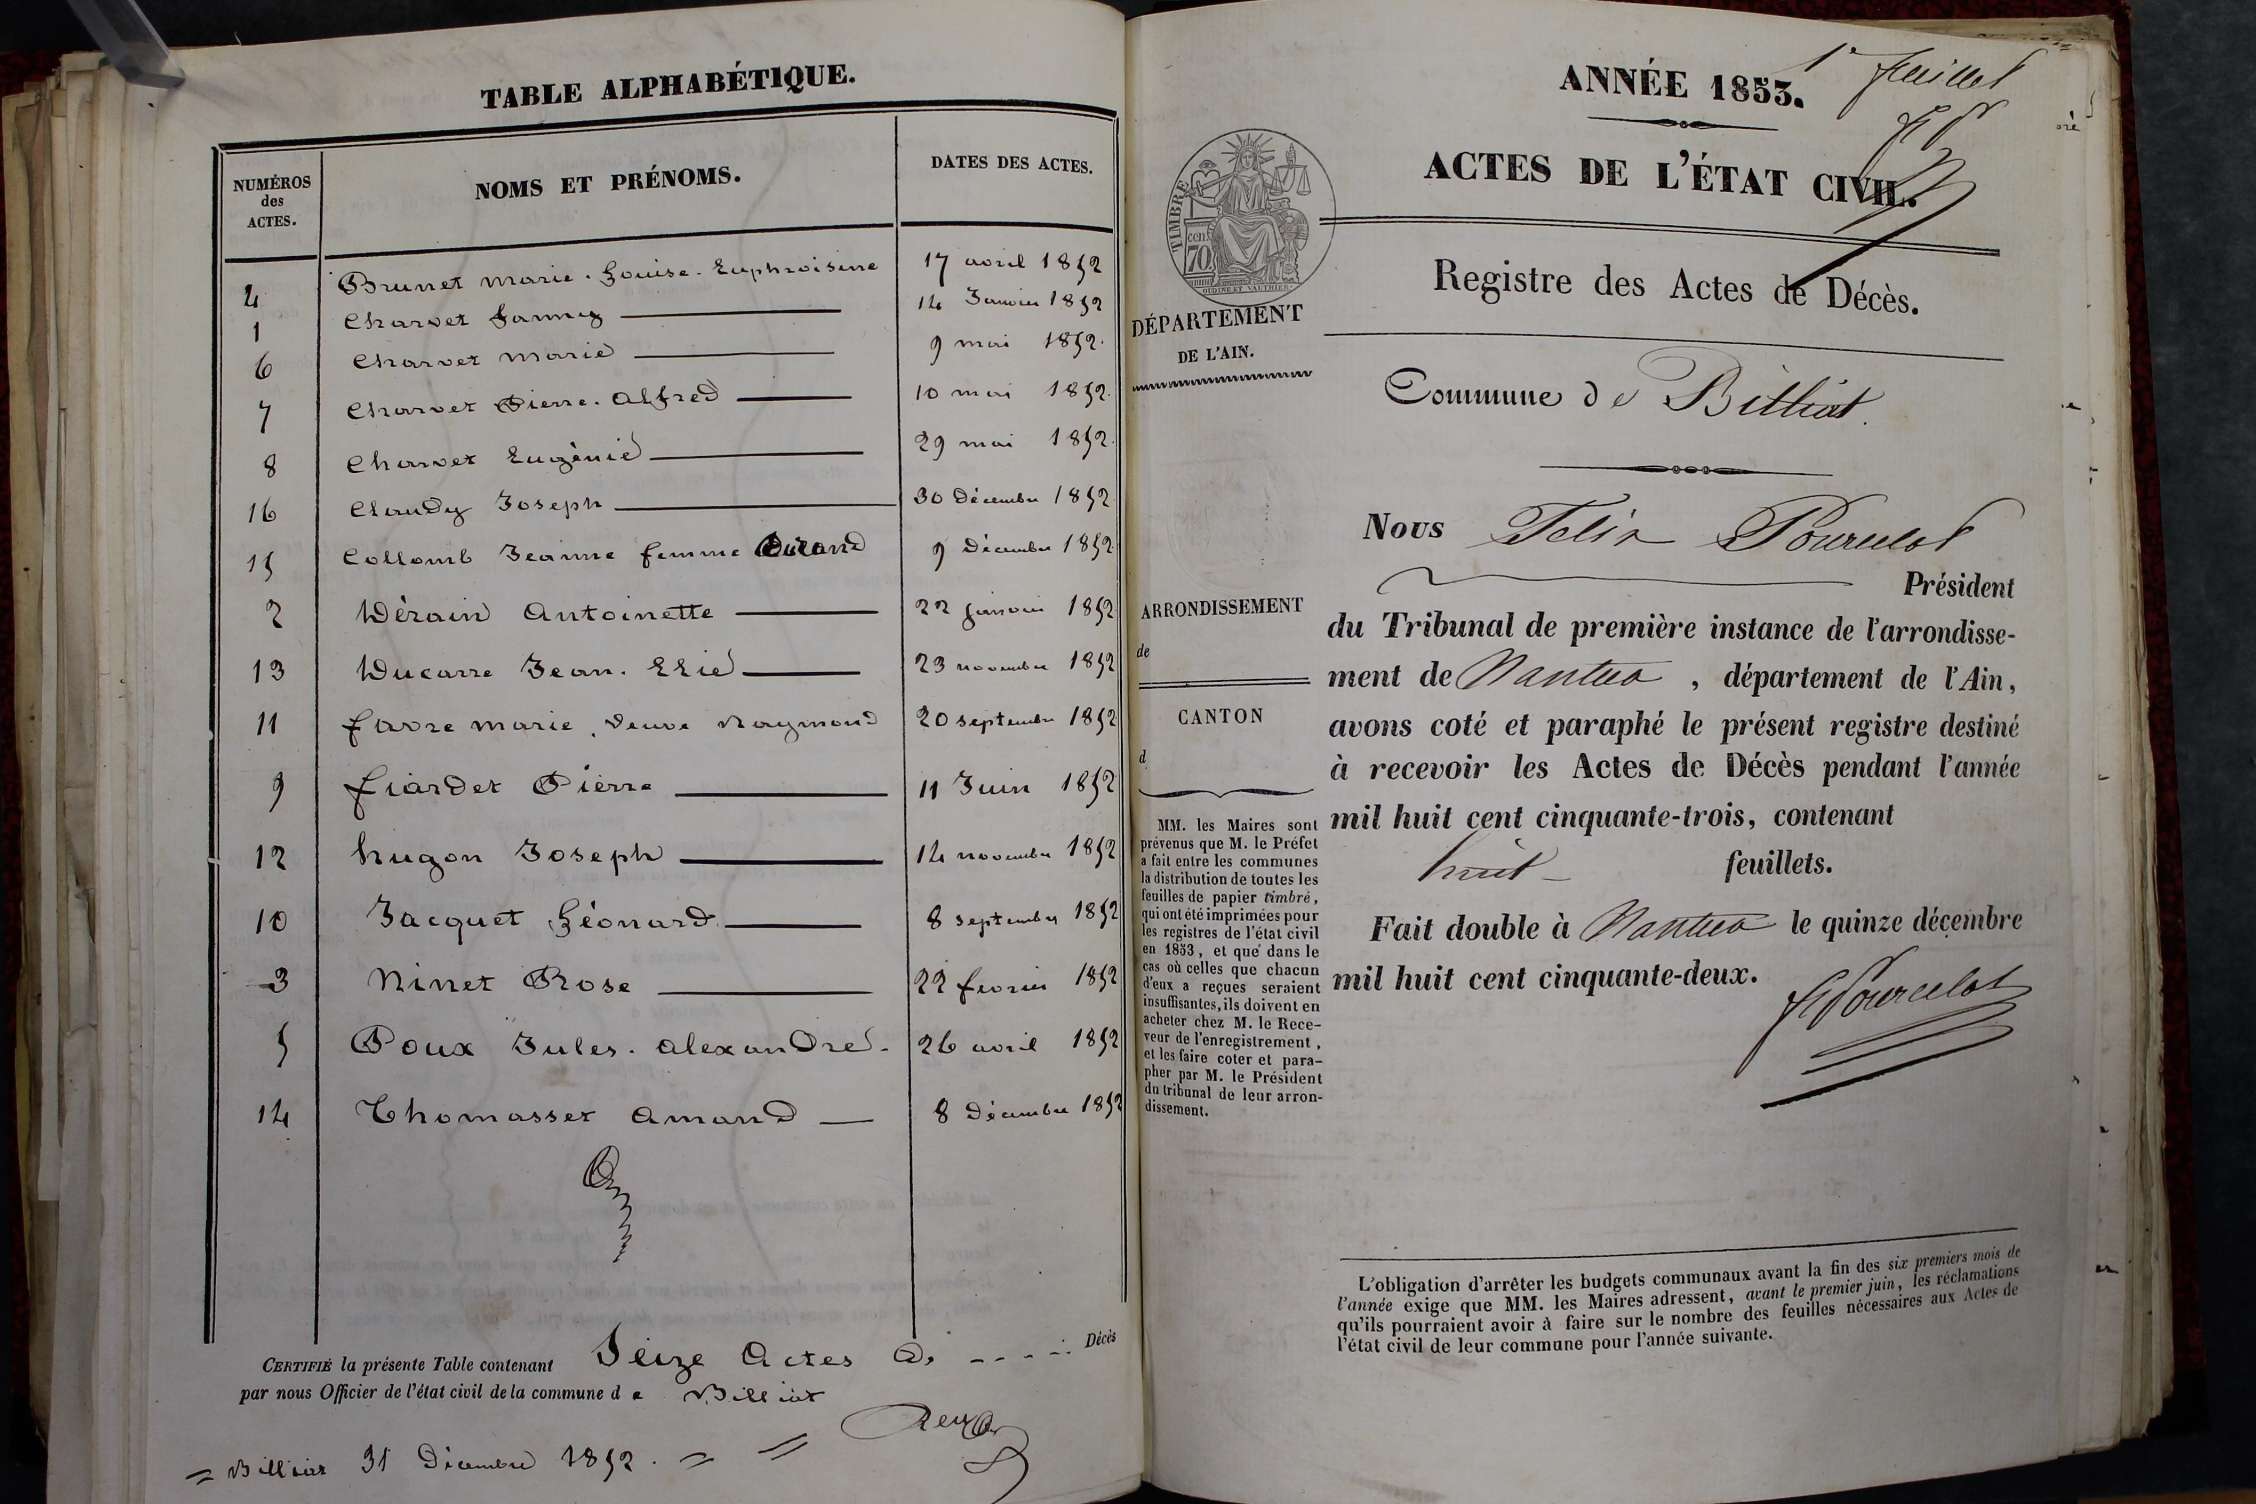 TABLE ALPHABÉTIQUE.
NUMÉROS des ACTES. NOMS ET PRÉNOMS. DATES DES ACTES.
4 Brunet marie. Louise. Euphroisine 17 avril 1852
1 Charvet fanny 14 Janvier 1852
6 Charvet marie 9 mai 1852.
7 Charvet Pierre. Alfred 10 mai 1852.
8 Charvet Eugènie 29 mai 1852.
16 Claudy Joseph 30 Décembre 1852
15 Collomb Jeanne femme 9 Décembre 1852
2 Dèrain Antoinette 22 janvier 1852
13 Ducarre Jean. Elie 23 novembre 1852
11 favre marie, veuve Raymond 20 septembre 1852
9 fiardet Pierre 11 Juin 1852
12 hugon Joseph 14 novembre 1852
10 Jacquet Léonard 8 septembre 1852
3 Ninet Rose 22 fevrier 1852
5 Poux Jules. alexandre. 26 avril 1852
14 Thomasset amand 8 Décembre 1852
CERTIFIÉ la présente Table contenant Seize Actes de Décès
par nous Officier de l'état civil de la commune de Billiat
= Billiat 31 Décembre 1852. = =
1er feuillet
FP
ANNÉE 1853.
ACTES DE L'ÉTAT CIVIL.
TIMBRE
70 cen.
OUDINE ET VAUTHIER.
Registre des Actes de Décès.
DÉPARTEMENT
DE L'AIN.
Commune de Billiat.
Nous Felix Pourcelot
Président
du Tribunal de première instance de l'arrondisse-
ment de Nantua, département de l'Ain,
avons coté et paraphé le présent registre destiné
à recevoir les Actes de Décès pendant l'année
mil huit cent cinquante-trois, contenant
huit feuillets.
Fait double à Nantua le quinze décembre
mil huit cent cinquante-deux.
F Pourcelot
ARRONDISSEMENT
de
CANTON
d
MM. les Maires sont
prévenus que M. le Préfet
a fait entre les communes
la distribution de toutes les
feuilles de papier timbré,
qui ont été imprimées pour
les registres de l'état civil
en 1853, et que dans le
cas où celles que chacun
d'eux a reçues seraient
insuffisantes, ils doivent en
acheter chez M. le Rece-
veur de l'enregistrement,
et les faire coter et para-
pher par M. le Président
du tribunal de leur arron-
dissement.
L'obligation d'arrêter les budgets communaux avant la fin des six premiers mois de
l'année exige que MM. les Maires adressent, avant le premier juin, les réclamations
qu'ils pourraient avoir à faire sur le nombre des feuilles nécessaires aux Actes de
l'état civil de leur commune pour l'année suivante.